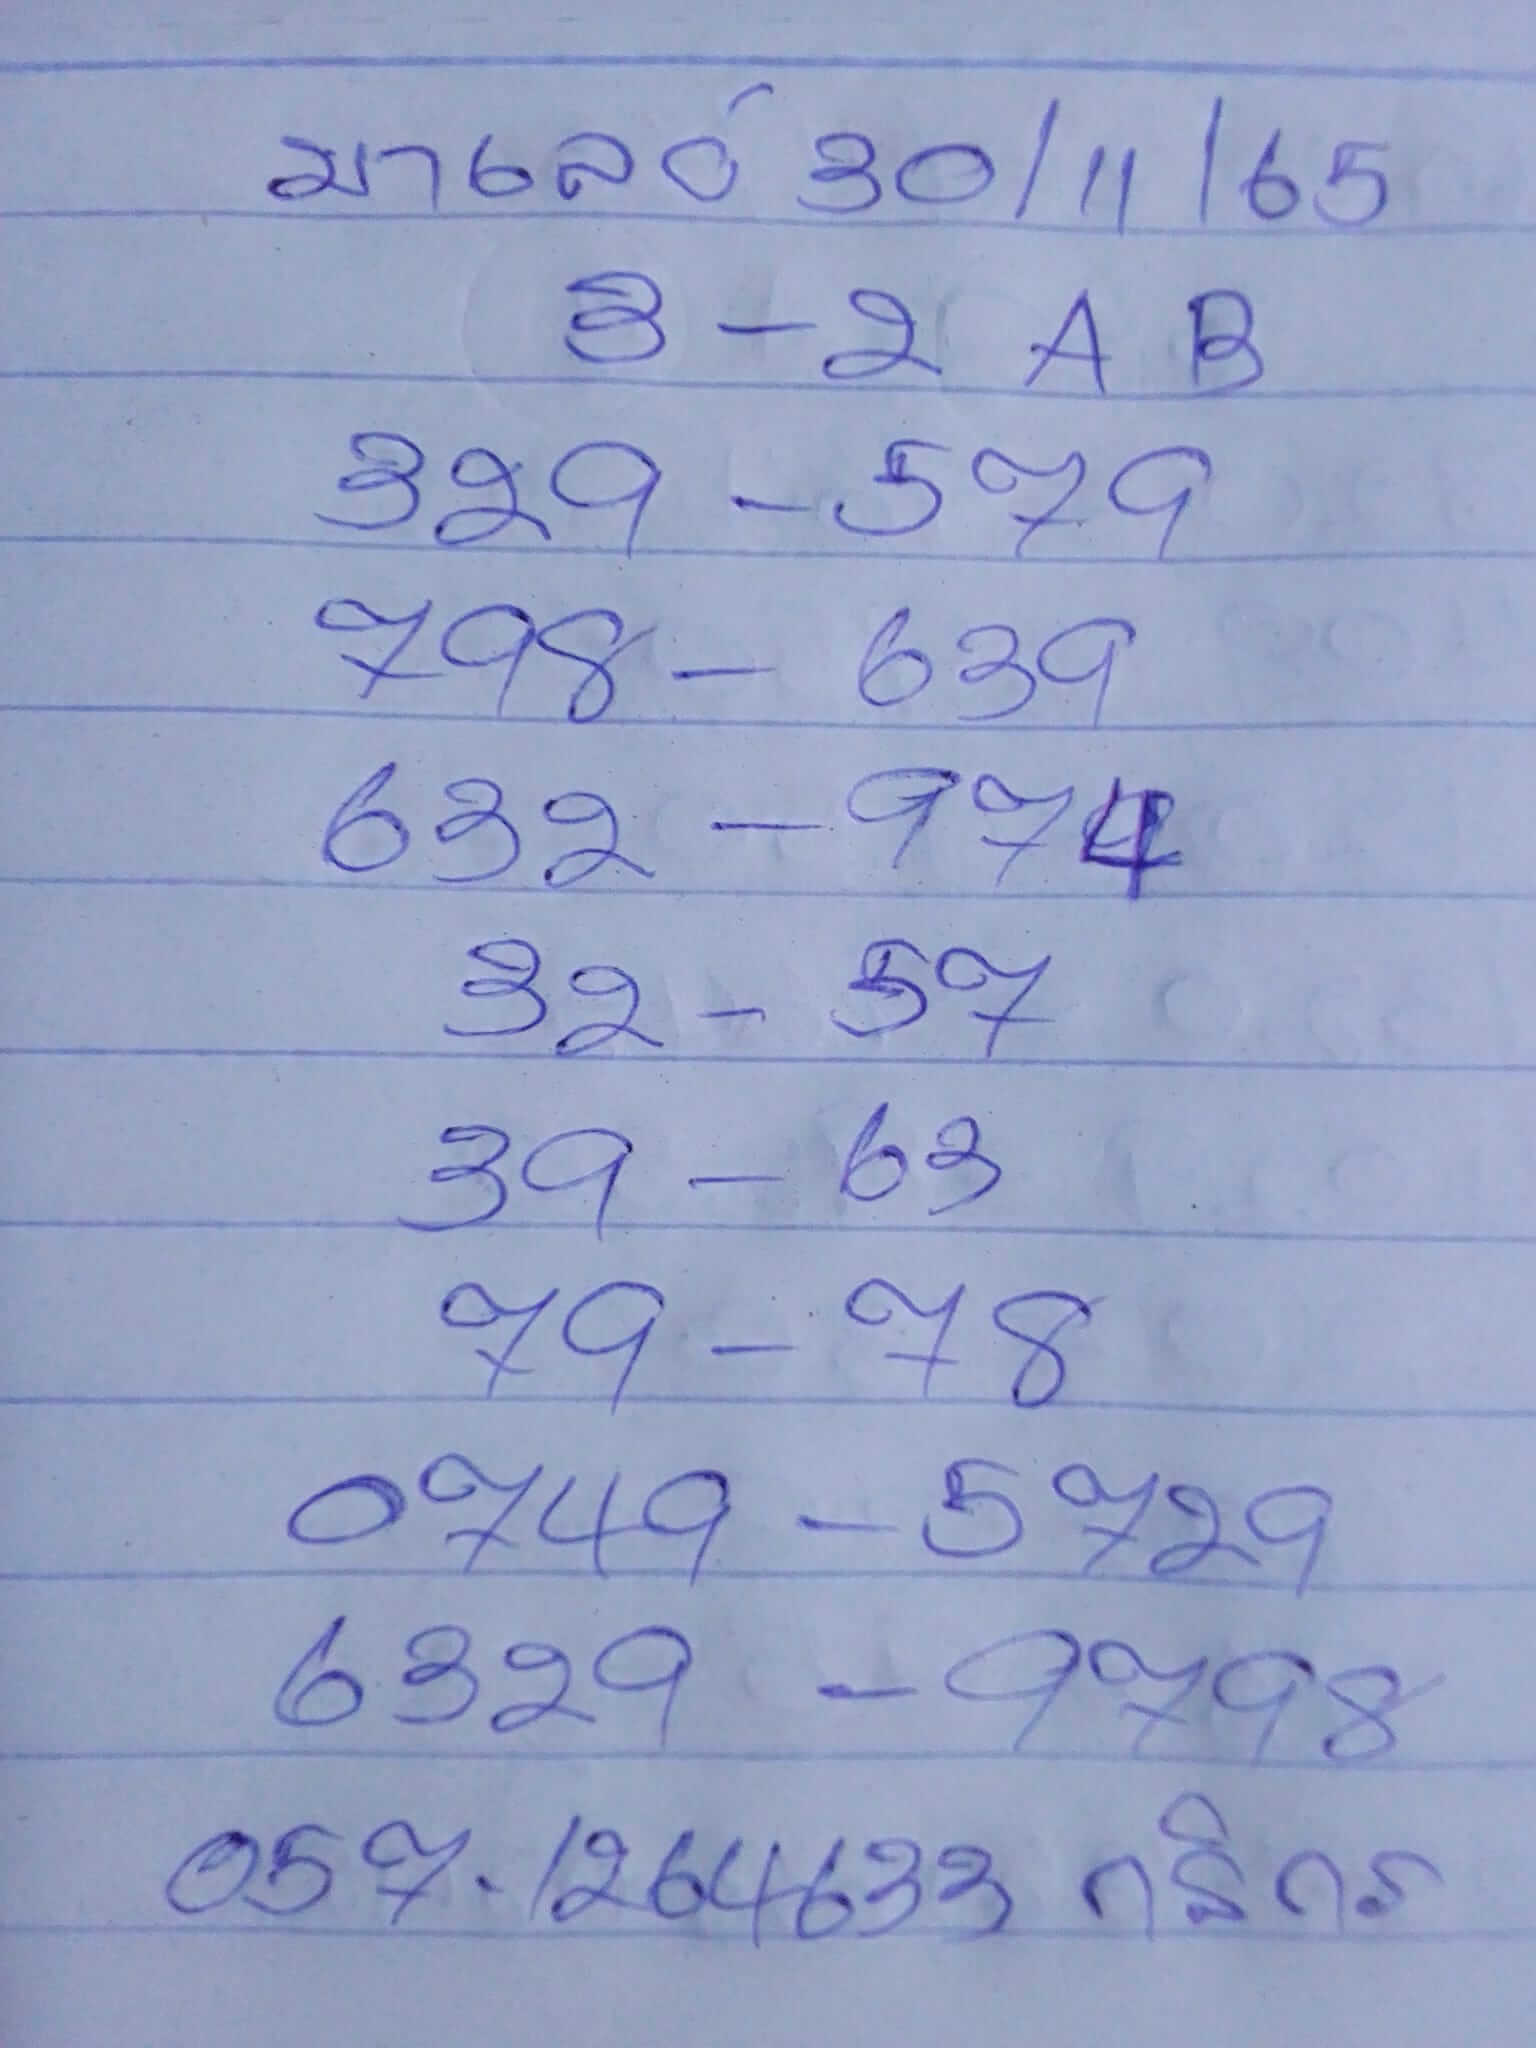 มาเลย์ 30/11/65
3-2 A B
329-579
798-639
632-974
32-57
39-63
79-78
0749-5729
6329-9798
057.1264633 กสิกร